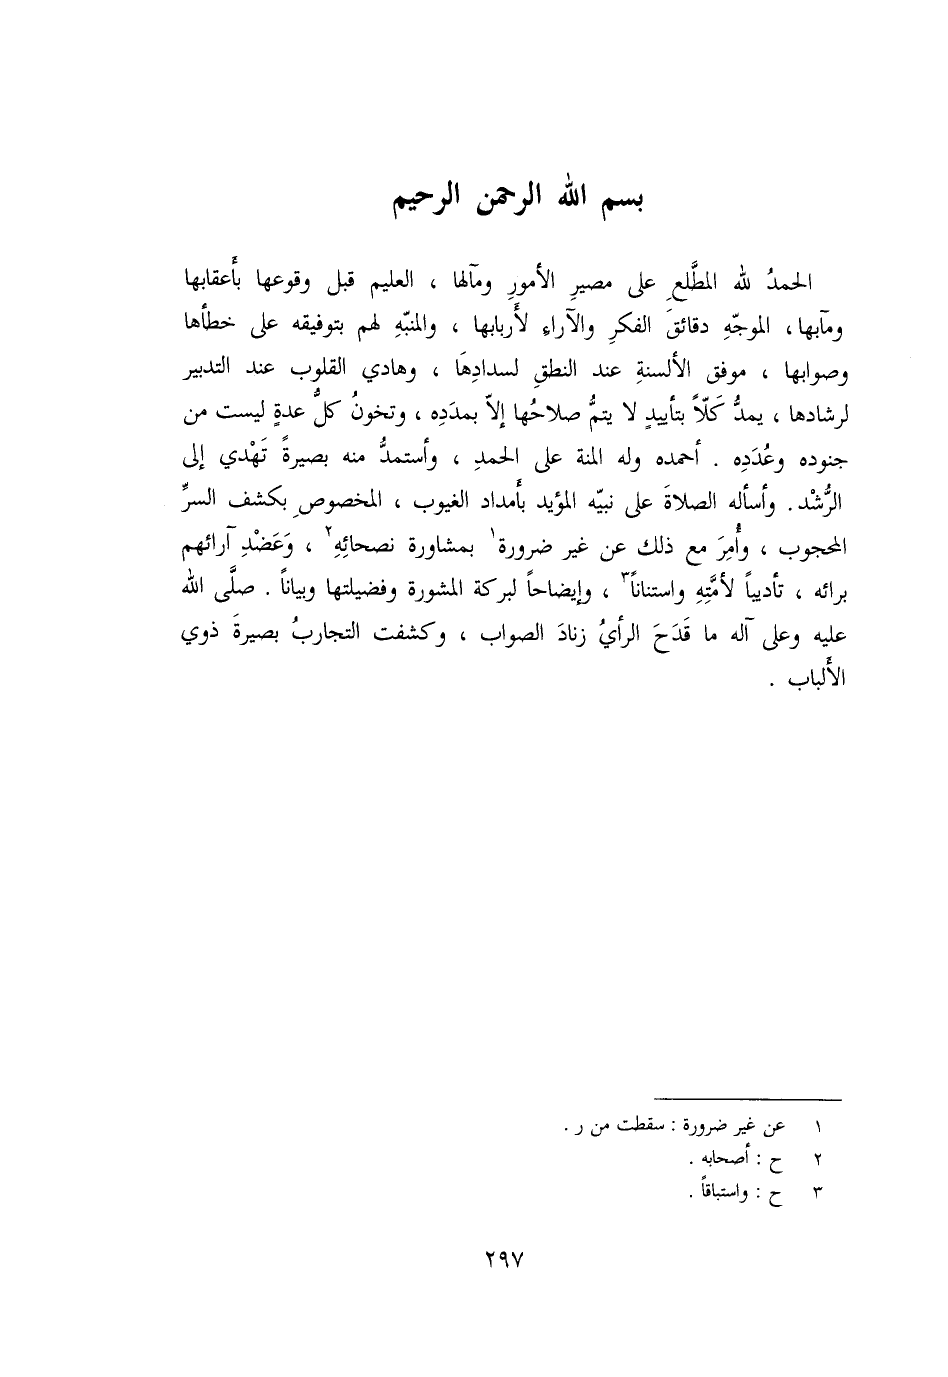 بسم الله الرحمن الرحيم
الحمدُ لله المطَّلعِ على مصيرِ الأمورِ ومآلها ، العليم قبل وقوعها بأَعقابها
ومآبها، الموجّهِ دقائقَ الفكرِ والآراءِ لأَربابها ، والمنبّهِ لهم بتوفيقه على خطأها
وصوابها ، موفق الألسنةِ عند النطقِ لسدادِهَا ، وهادي القلوب عند التدبير
لرشادها ، يمدُّ كَلّاً بتأييدٍ لا يتمُّ صلاحُها إلاّ بمدَدِه ، وتخونُ كلُّ عدةٍ ليست من
جنوده وعُدَدِه . أحمده وله المنة على الحمدِ ، وأستمدُّ منه بصيرةً تَهْدي إلى
الرُّشْد. وأسأله الصلاةَ على نبيّه المؤيد بأَمداد الغيوب ، المخصوصِ بكشف السرِّ
المحجوب ، وأُمِرَ مع ذلك عن غير ضرورة١ بمشاورة نصحائِهِ٢ ، وَعَضْدِ آرائهم
برائه ، تأديباً لأمَّتِهِ واستناناً٣ ، وإيضاحاً لبركة المشورة وفضيلتها وبياناً . صلَّى الله
عليه وعلى آله ما قَدَحَ الرأيُ زنادَ الصواب ، وكشفت التجاربُ بصيرةَ ذوي
الأَلباب .
١ عن غير ضرورة : سقطت من ر .
٢ ح : أصحابه .
٣ ح : واستباقاً .
٢٩٧